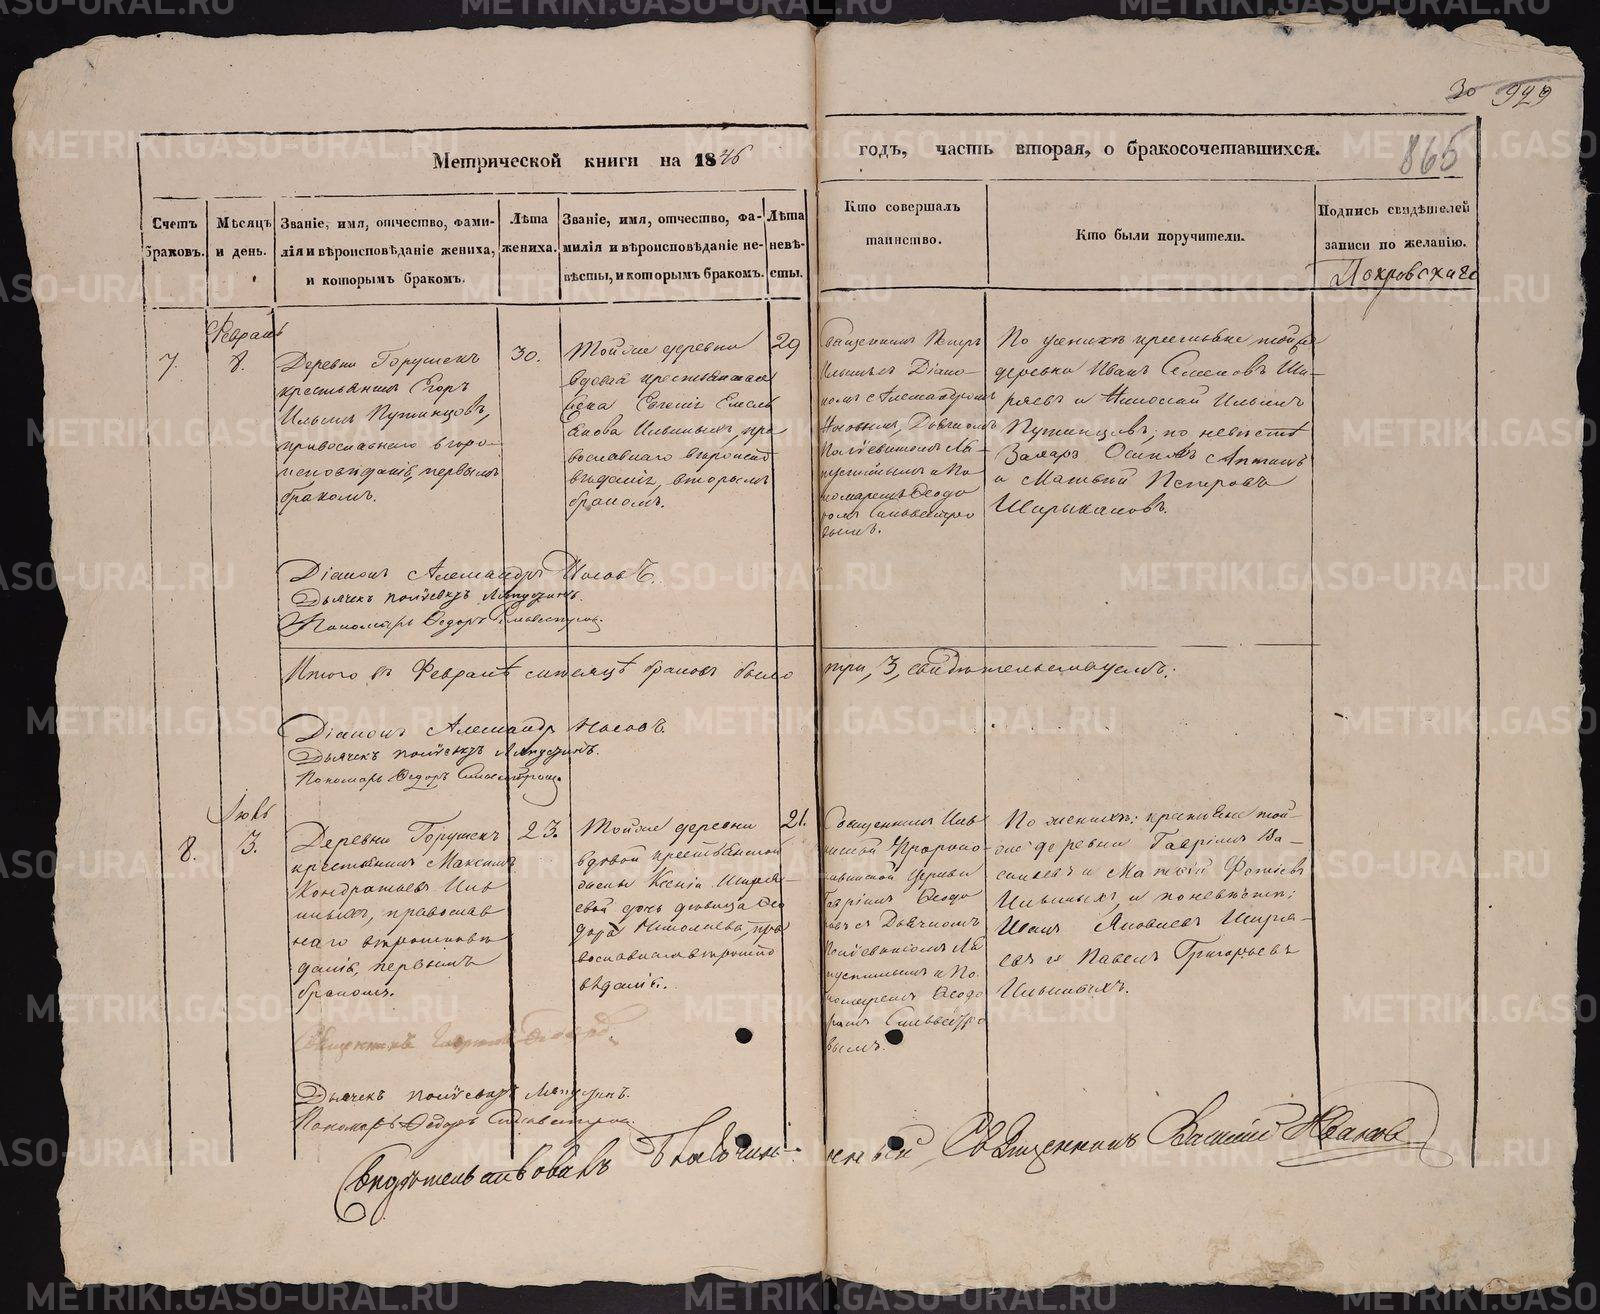 30 929
865
Метрической книги на 1846
годъ, часть вторая, о бракосочетавшихся.
Счетъ браковъ.
Мѣсяцъ и день.
Званіе, имя, отчество, фами-
лія и вѣроисповѣданіе жениха,
и которымъ бракомъ.
Лѣта
жениха.
Званіе, имя, отчество, фа-
милія и вѣроисповѣданіе не-
вѣсты, и которымъ бракомъ.
Лѣта
невѣ-
сты.
Кто совершалъ
таинство.
Кто были поручители.
Подпись свидѣтелей
записи по желанію.
Покровскаго
Февраль
7.
8.
Деревни Горушекъ
крестьянинъ Егоръ
Ильинъ Путинцовъ,
православнаго вѣро-
исповѣданія, первымъ
бракомъ.
30.
Тойже деревни
вдовая крестьянская
жена Евгенія Емель
янова Ильиныхъ, пра
вославнаго вѣроиспо
вѣданія, вторымъ
бракомъ.
29
Священникъ Петръ
Ильинъ съ Діако-
номъ Александромъ
Носовымъ, Дьячкомъ
Полѵевктомъ Ла-
пустинымъ и По
номаремъ Ѳеодо
ромъ Сильвестро
вымъ.
По женихѣ крестьяне тойже
деревни Иванъ Семеновъ Ши-
ряевъ и Николай Ильинъ
Путинцовъ; по невѣстѣ
Захаръ Осиповъ
и Матвѣй Петровъ
Шарыкаловъ.
Діаконъ Александръ Носовъ.
Дьячекъ Полѵевктъ Ляпустинъ.
Пономарь Ѳедоръ Сильвестровъ.
Итого въ Февралѣ мѣсяцѣ браковъ было
три, 3, свидѣтельствуемъ:
Діаконъ Александръ Носовъ.
Дьячекъ Полѵевктъ Ляпустинъ.
Пономарь Ѳедоръ Сильвестровъ.
Іюль
8.
3.
Деревни Горушекъ
крестьянинъ Максимъ
Кондратьевъ Иль
иныхъ, православ
наго вѣроисповѣ
данія, первымъ
бракомъ.
23.
Тойже деревни
вдовой крестьянской
жены Ксеніи Ширя-
евой дочь дѣвица Ѳео
дора Николаева, пра
вославнаго вѣроиспо
вѣданія.
21.
Священникъ Иль
инской Пророко-
Ильинской церкви
Гавріилъ Ѳеодо
ровъ съ Дьячкомъ
Полѵевктомъ Ля
пустинымъ и По-
номаремъ Ѳеодо
ромъ Сильвестро
вымъ.
По женихѣ: крестьяне той-
же деревни Гавріилъ Ва-
сильевъ и Матвѣй Фотіевъ
Ильиныхъ, и по невѣстѣ:
Иванъ Яковлевъ Ширя-
евъ и Павелъ Григорьевъ
Ильиныхъ.
Священникъ
Дьячекъ Полѵевктъ Ляпустинъ.
Пономарь Ѳедоръ Сильвестровъ.
Свидѣтельствовалъ Благочин-
ный, Священникъ Василій Ивановъ